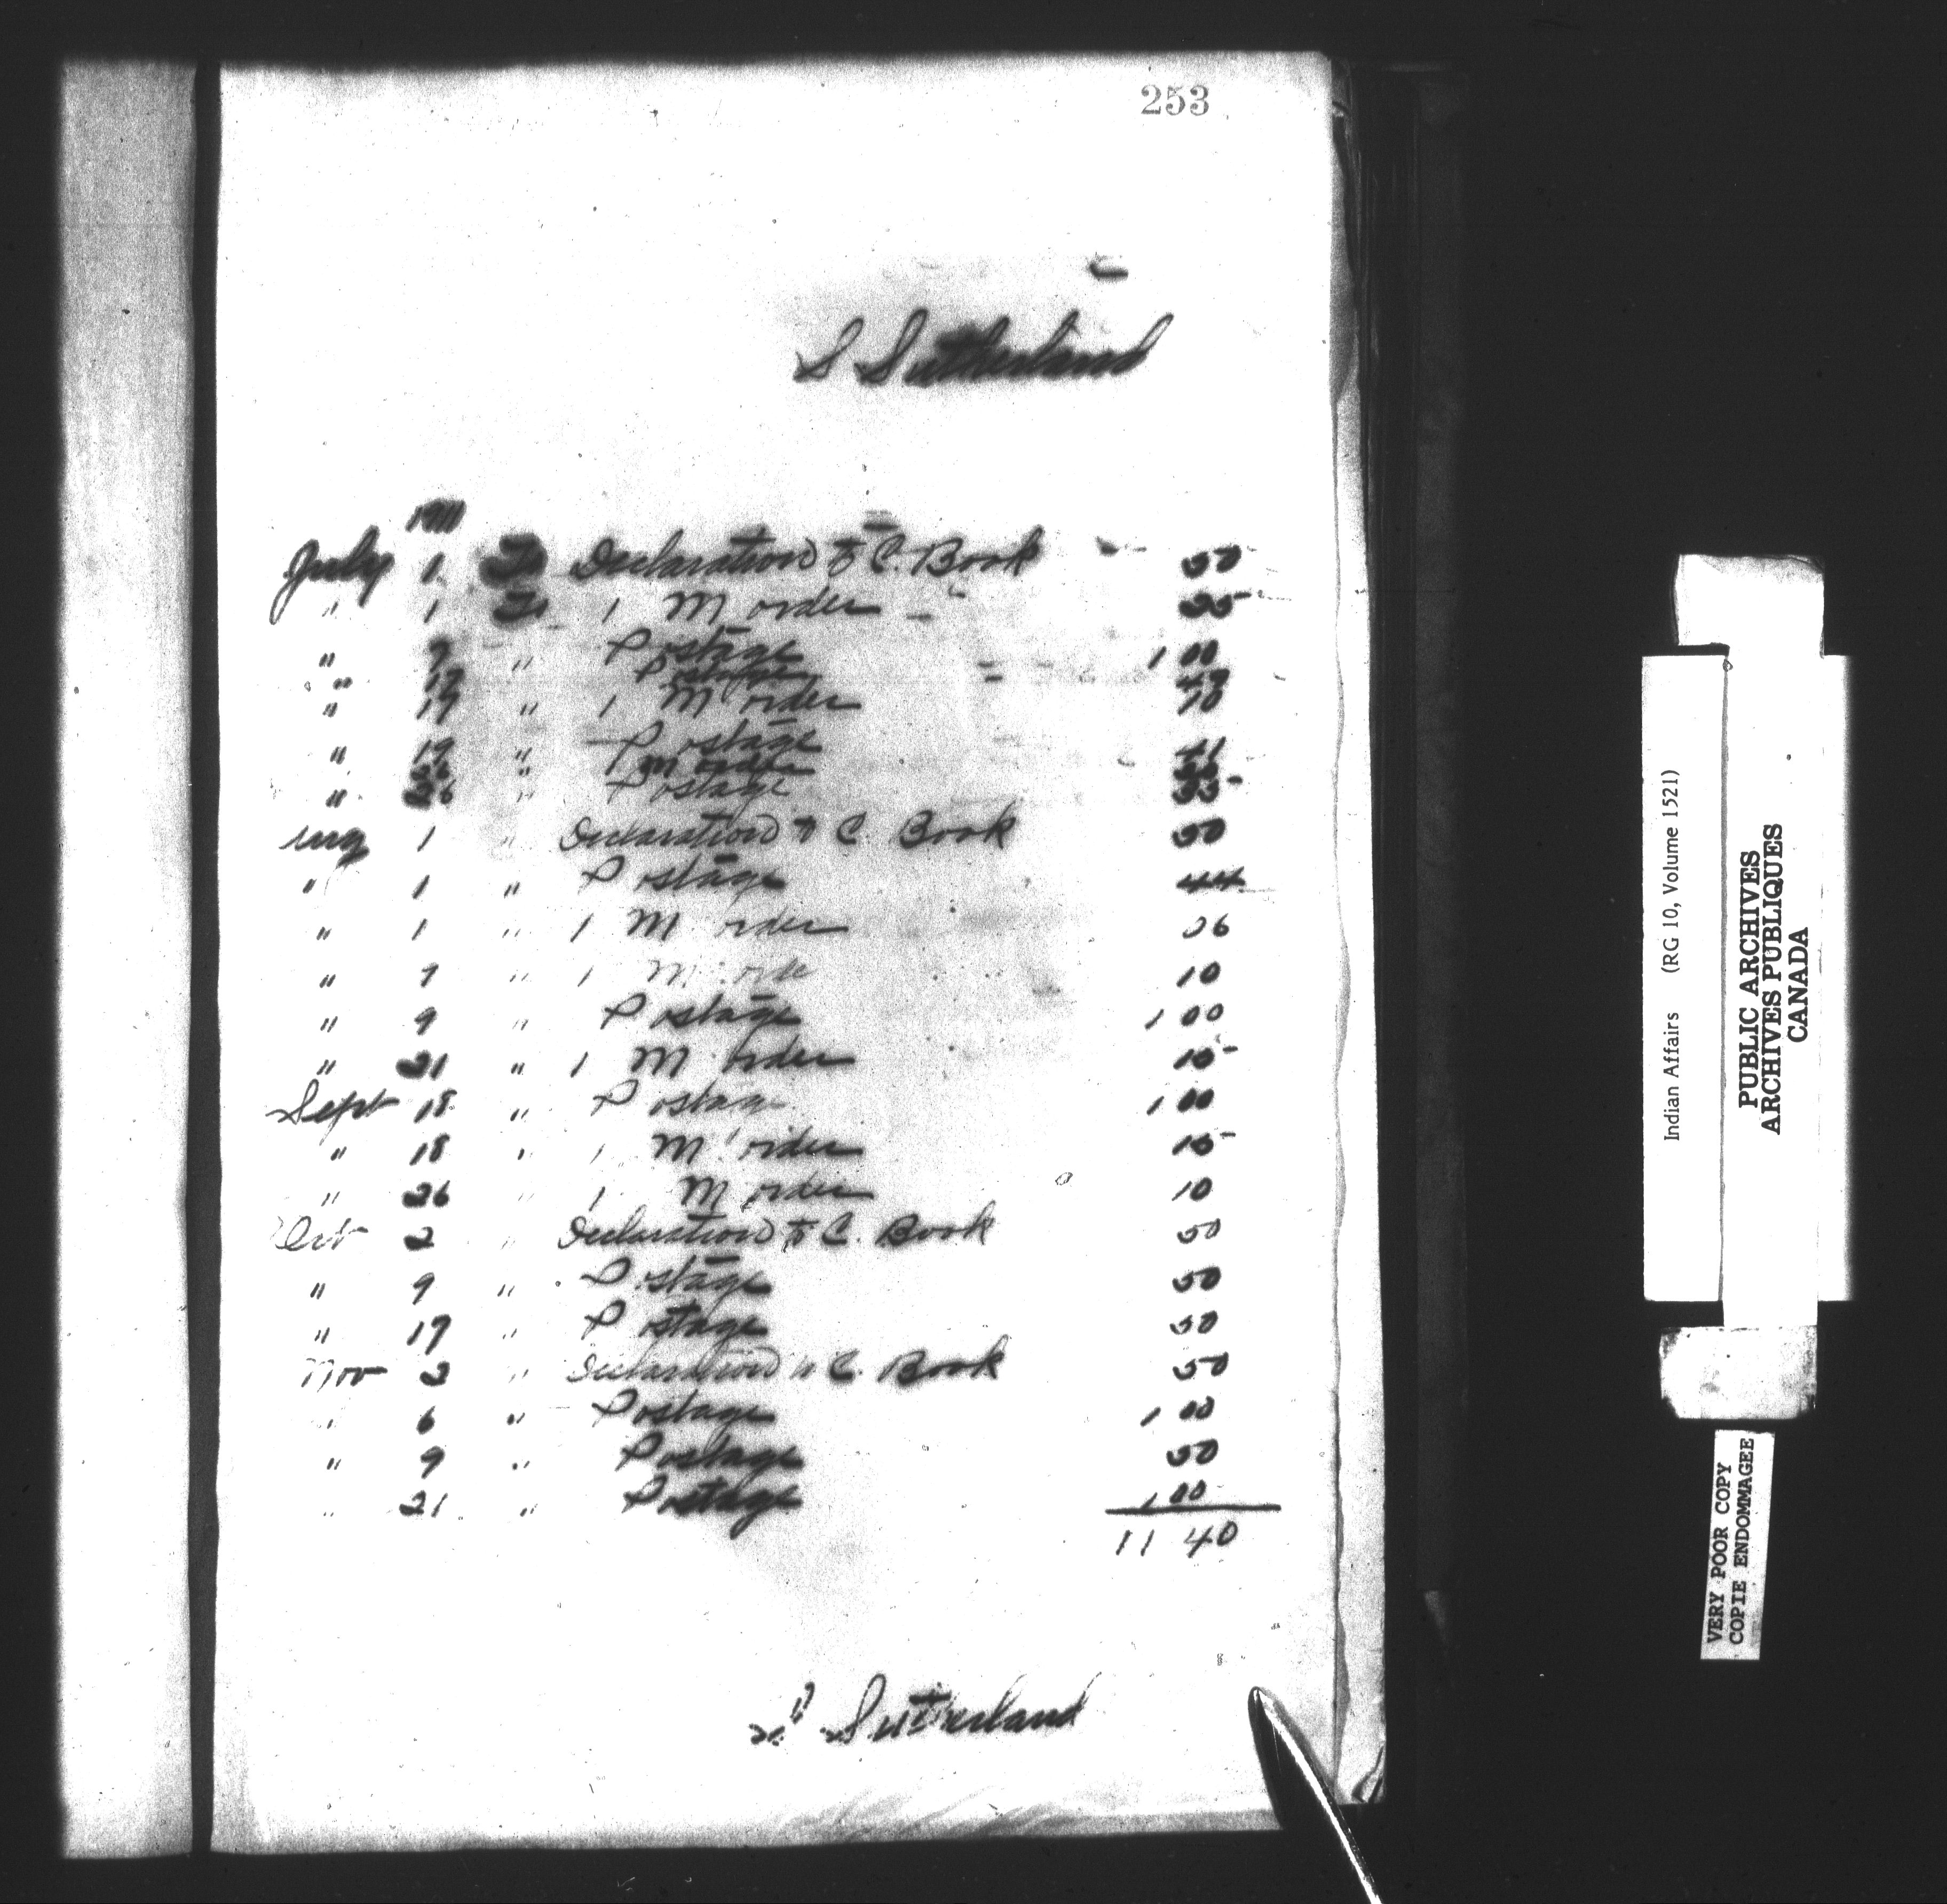 253
S Sutherland
1911
July 1 To Declaration to C. Book 50
" 1 To 1 M order 25
" 9 " Postage 1 00
" 17 " Postage
" 17 " 1 M order 10
" 19 " Postage 41
" 26 " 1 M order
" 26 " Postage
Aug 1 " Declaration to C. Book 50
" 1 " Postage 44
" 1 " 1 M order 06
" 9 " 1 M orde 10
" 9 " Postage 1 00
" 21 " 1 M order 15
Sept 18 " Postag 1 00
" 18 " 1 M order 15
" 26 " 1 M order 10
Oct 2 " Declaration to C. Book 50
" 9 " Postage 50
" 17 " Postage 50
Nov 2 " Declaration " C. Book 50
" 6 " Postage 1 00
" 9 " Postage 50
" 21 " Postage 1 00
11 40
S Sutherland
Indian Affairs (RG 10, Volume 1521)
PUBLIC ARCHIVES
ARCHIVES PUBLIQUES
CANADA
VERY POOR COPY
COPIE ENDOMMAGEE